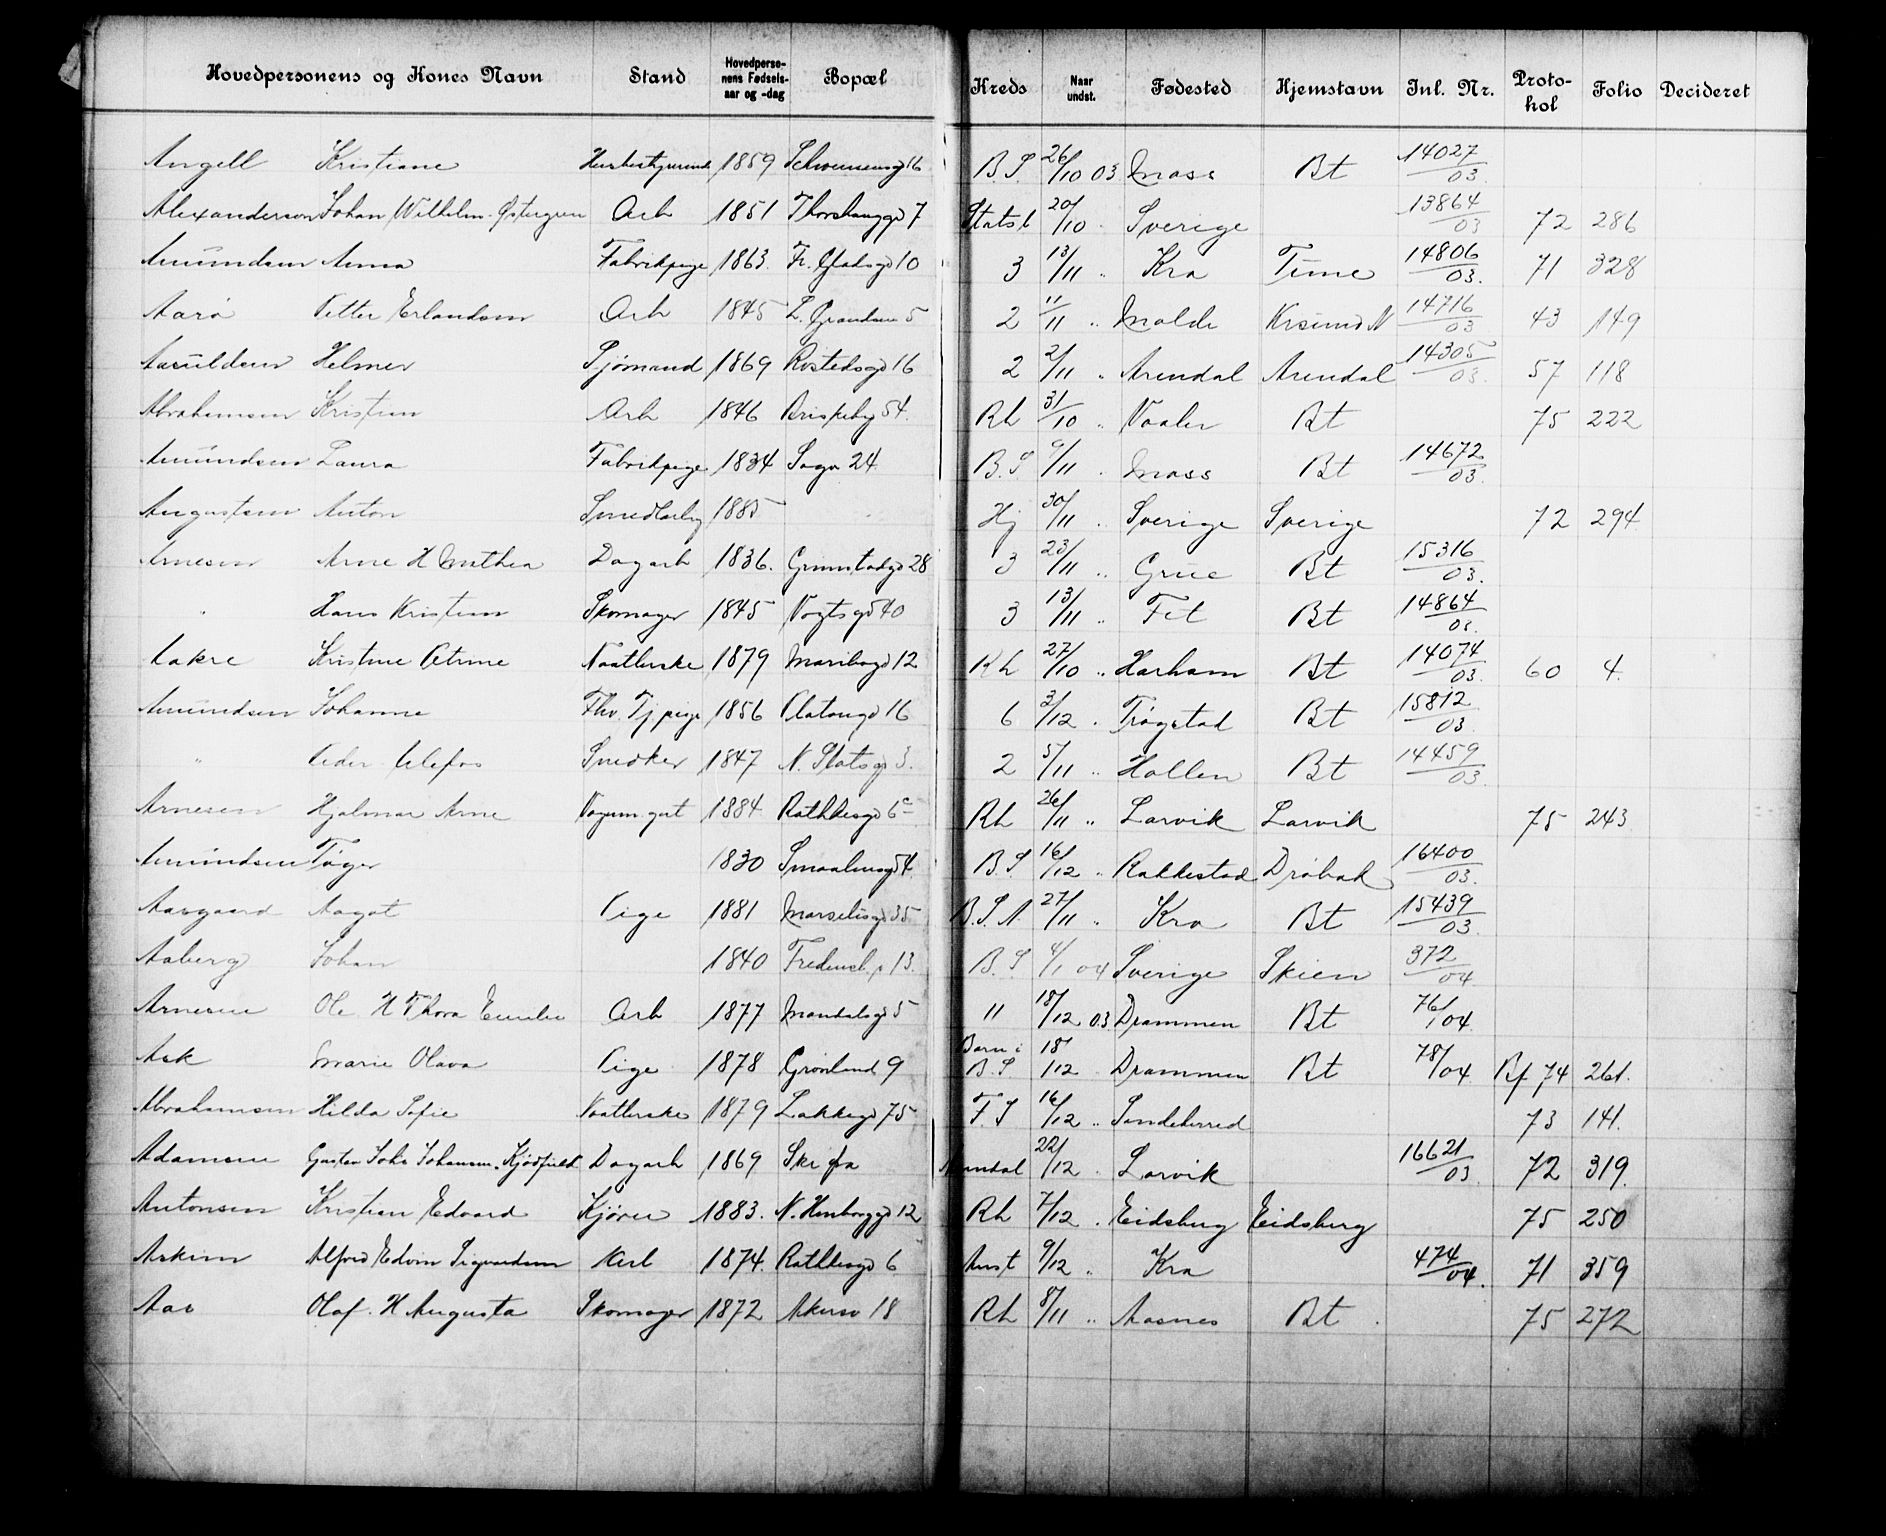 Hovedpersonens og Kones Navn Stand Hovedpersonens Fødsels-aar og -dag Bopæl Kreds Naar undst. Fødested Hjemstavn Inl. Nr. Protokol Folio Decideret
Angell Kristiane 1859 16 B.S. 26/10 03 Moss Bt 14027/03.
Alexanderson Johan Wilhelm Østergren Arb 1851 7 Statsb 20/10 Sverige 13864/03 72 286
Amundsen Anna Fabrikpige 1863. 10 3 13/11 " Kra Time 14806/03. 71 328
Aarø Petter Erlandsen Arb 1845 5 2 11/11 " Molde Krsund N 14716/03 43 149
Aasuldsen Helmer Sjømand 1869 Rostedsgd 16 2 2/11 " Arendal Arendal 14305/03. 57 118
Abrahamsen Kristian Arb 1846 Brispeby 54. Rh 31/10 " Vaaler Bt 75 222
Amundsen Laura Fabrikpige 1834 Sagv 24 B.S 9/11 Moss Bt 14672/03.
Augustsen Anton 1885 Hj 30/11 " Sverige Sverige 72 294
Arnesen Arne H Mathea Dagarb 1836. Grimstadgd 28 3 23/11 " Grue Bt 15316/03.
" Hans Kristian Skomager 1845 Vogtsgd 40 3 13/11 " Fet Bt 14864/03.
Aakre Kristine Petrine Vaatterske 1879 Maribogd 12 Rh 27/10 " Harham Bt 14074/03. 60 4.
Amundsen Johanne Fhv. Tj pige 1856 Platousgd 16 6 3/12 . Trøgstad Bt 15812/03
" Peder Ulefos Snedker 1847 N. Slotsgd 3. 2 5/11 " Hollen Bt 14459/03
Arnesen Hjalmar Arne 1884 Rathkesgd 6c Rh 26/11 " Larvik Larvik 75 243
Amundsen Tøger 1830 Smaalensgd 4 B.S 16/12 " Rakkestad Drøbak 16400/03.
Aasgaard Aagot Pige 1881 Marselisgd 35 B.S.A. 27/11 " Kra Bt 15439/03
Aaberg Johan 1840 13. B.S 4/1 04 Sverige Skien 372/04
Arnesen Ole H Thora Emilie Arb 1877 Mandalsgd 5 11 18/12 03 Drammen Bt 76/04
Ask Marie Olava Pige 1878 Grønland 9 Barn i B.S 18/12 Drammen Bt 78/04 Bf 74 261.
Abrahamsen Hilda Sofie Vaatterske 1879 Lakkegd 75 F.S 16/12 " Sandeherred 73 141.
Adamsen Gustav Johs Johansen Dagarb 1869 Ski fra Arendal 22/12 . Larvik 16621/03 72 319.
Antonsen Kristian Edvard Kjører 1883. 12 Rh 7/12 . Eidsberg Eidsberg 75 250
Askim Alfred Edvin Sigvardsen Arb 1874. Rathkesgd 6 9/12 " Kra 474/04. 71 359
Aas Olaf. H Augusta Skomager 1872 Akersv 18 Rh 8/11 " Aasnes Bt 75 272